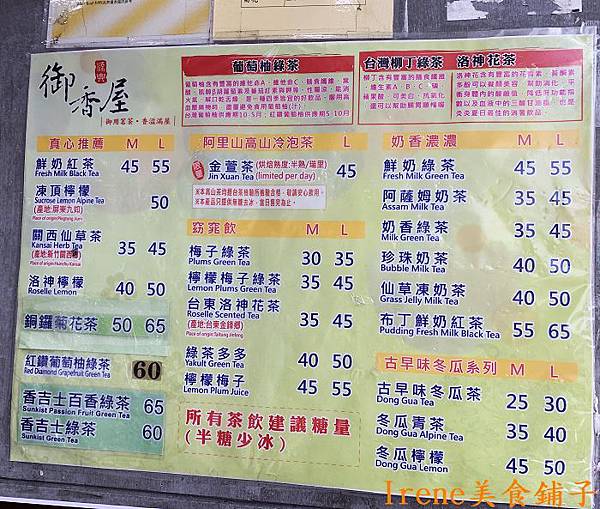 御香屋
御用茗茶·香溢滿屋
葡萄柚綠茶
台灣柳丁綠茶 洛神花茶
真心推薦 M L
鮮奶紅茶 45 55
Fresh Milk Black Tea
凍頂檸檬 50
Sucrose Lemon Alpine Tea
(產地:屏東九如)
Place of origin:Pingtung Jiuru
關西仙草茶 35 45
Kansai Herb Tea
(產地:新竹關西)
洛神檸檬 40 50
Roselle Lemon
銅鑼菊花茶 50 65
紅鑽葡萄柚綠茶 60
Red Diamond Grapefruit Green Tea
香吉士百香綠茶 65
Sunkist Passion Fruit Green Tea
香吉士綠茶 60
Sunkist Green Tea
阿里山高山冷泡茶 L
限量 金萱茶 (烘焙熟度:半熟/瑞里) 45
Jin Xuan Tea (limited per day)
※本高山茶均經台茶檢驗所客觀合格,敬請安心飲用。
※本產品只提供無糖去冰,當日售完為止。
窈窕飲 M L
梅子綠茶 30 35
Plums Green Tea
檸檬梅子綠茶 35 45
Lemon Plums Green Tea
台東洛神花茶 35 45
Roselle Scented Tea
(產地:台東金鋒鄉)
Place of origin:Taitung Jinfeng
綠茶多多 40 50
Yakult Green Tea
檸檬梅子 45 55
Lemon Plum Juice
所有茶飲建議糖量
(半糖少冰)
奶香濃濃 M L
鮮奶綠茶 45 55
Fresh Milk Green Tea
阿薩姆奶茶 35 45
Assam Milk Tea
奶香綠茶 35 45
Milk Green Tea
珍珠奶茶 40 50
Bubble Milk Tea
仙草凍奶茶 40 50
Grass Jelly Milk Tea
布丁鮮奶紅茶 55 65
Pudding Fresh Milk Black Tea
古早味冬瓜系列 M L
古早味冬瓜茶 25 30
Dong Gua Tea
冬瓜青茶 35 40
Dong Gua Alpine Tea
冬瓜檸檬 45 50
Dong Gua Lemon
Irene美食鋪子